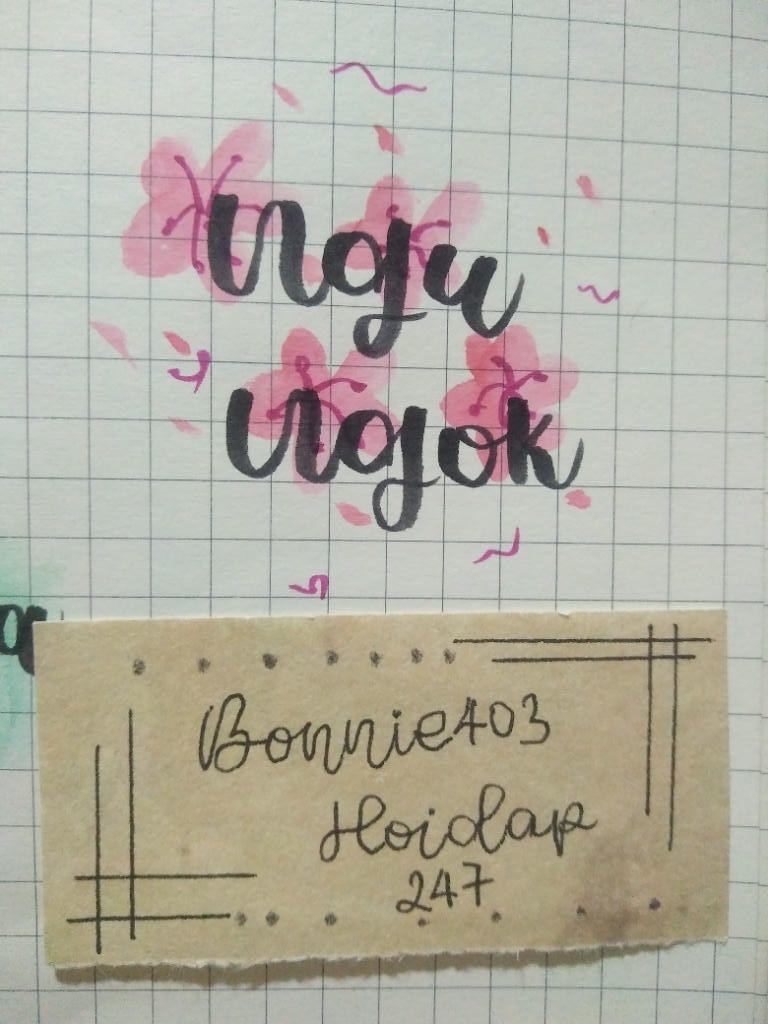 Noju
Nojok
Bonnie403
Hoidap
247